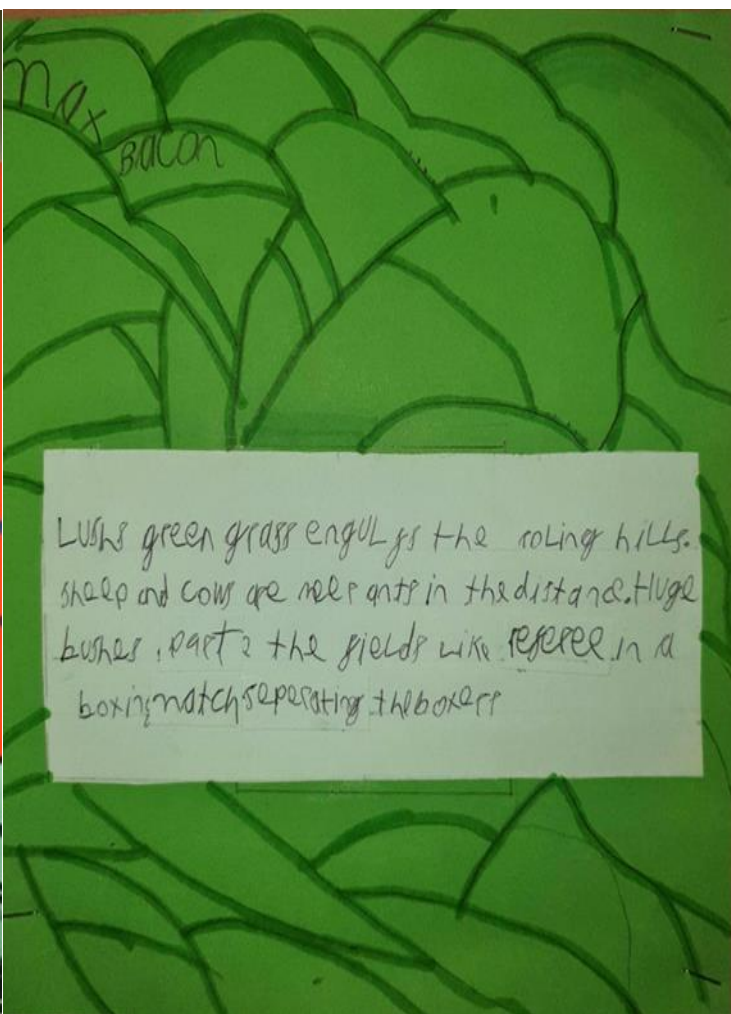 Max
Bacon
Lushs green grass engulfs the roling hills.
sheep and cows are mere ants in the distance. Huge
bushes, part the fields like referee in a
boxing match seperating the boxers